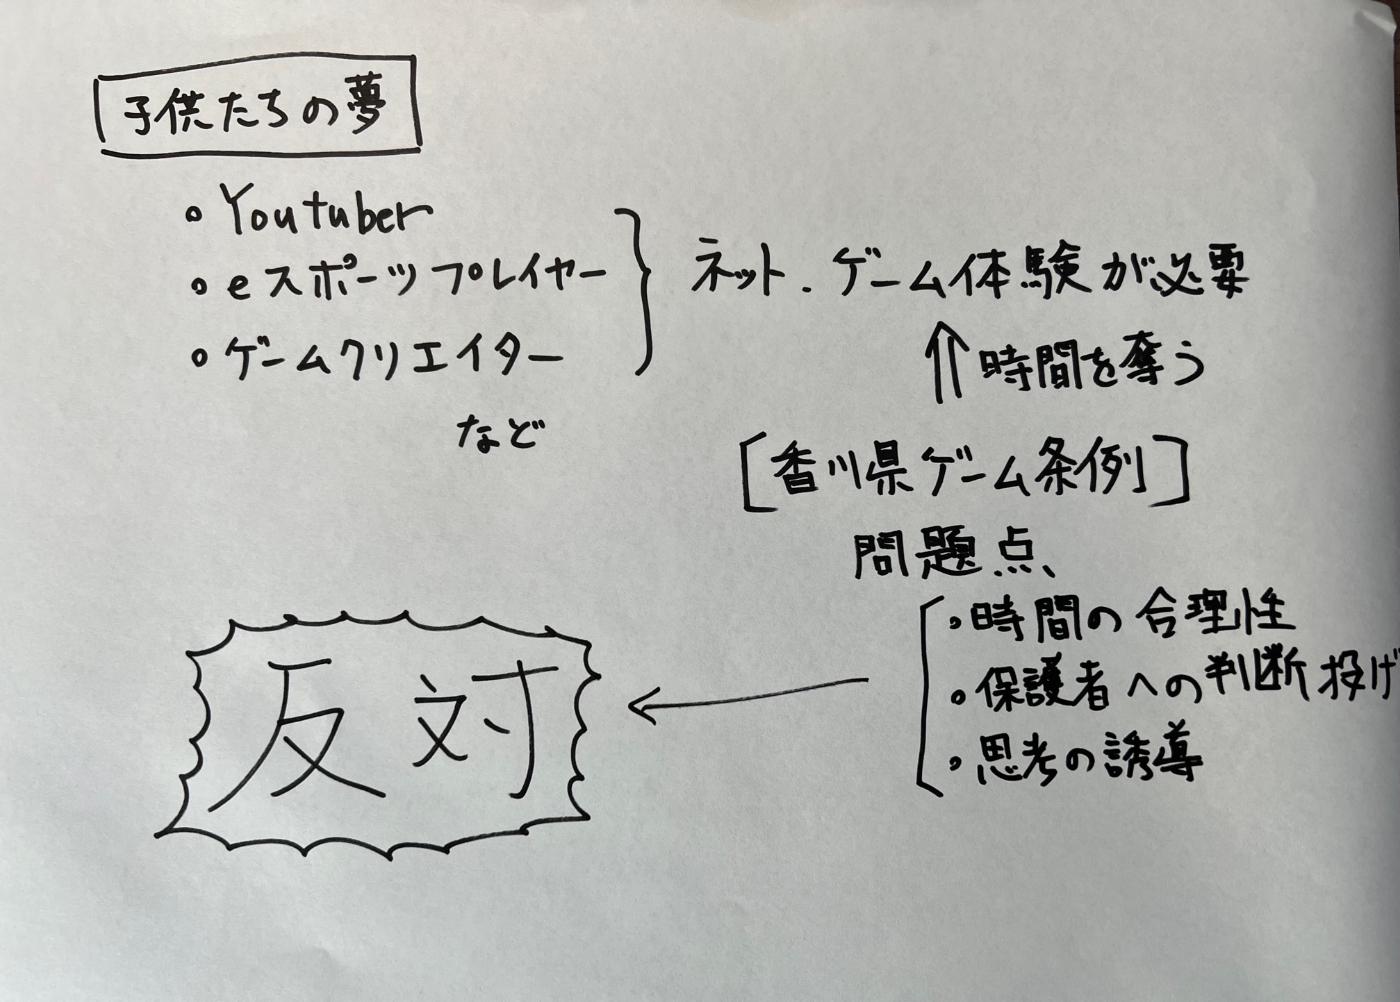 子供たちの夢
• Youtuber
• eスポーツプレイヤー
• ゲームクリエイター
など
ネット.ゲーム体験が必要
⇑時間を奪う
[香川県ゲーム条例]
問題点、
• 時間の合理性
• 保護者への判断投げ
• 思考の誘導
反対